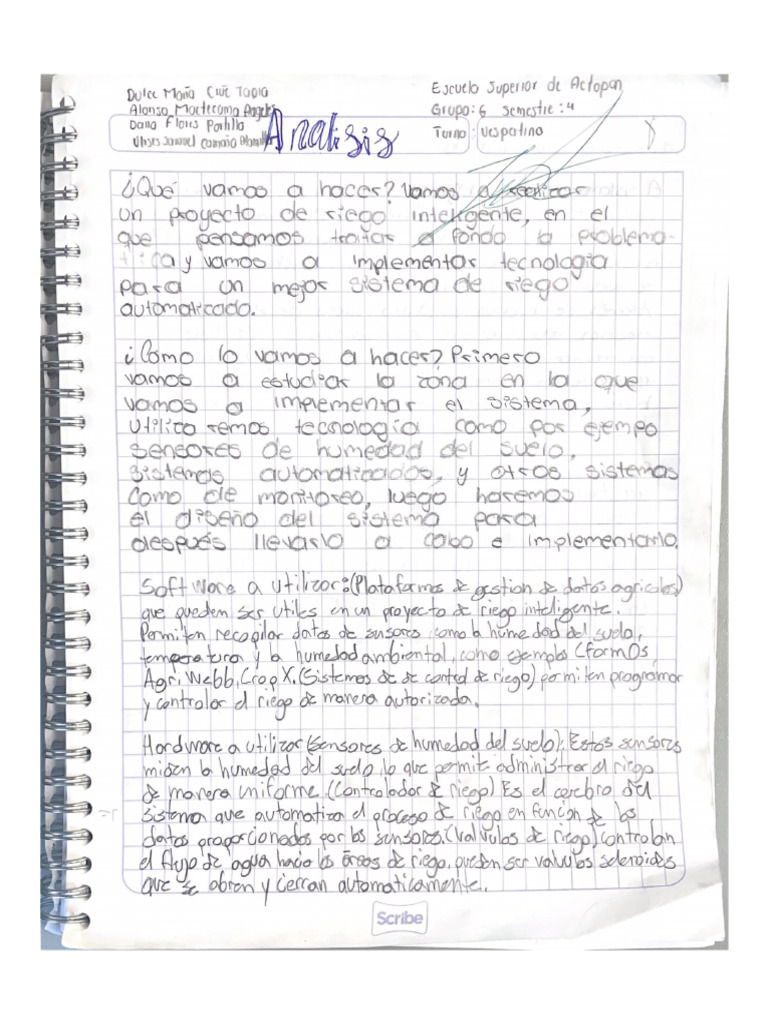 Dulce Maria Cruz Tapia
Alonso Moctezuma Angeles
Dana Flores Portillo
Ulises Samuel
Escuela Superior de Actopan
Grupo: 6 Semestre: 4
Turno: Vespertino
Analisis
¿Qué vamos a hacer? Vamos a realizar
un proyecto de riego inteligente, en el
que pensamos tratar a fondo la problema-
tica y vamos a implementar tecnologia
para un mejor sistema de riego
automaticado.
¿Como lo vamos a hacer? Primero
vamos a estudiar la zona en la que
vamos a implementar el sistema,
utilizaremos tecnologia como por ejempo
sensores de humedad del suelo,
sistemas automaticados, y otros sistemas
como de monitoreo, luego haremos
el diseño del sistema para
después llevarlo a cabo e implementarlo.
Software a utilizar: (Plataformas de gestion de datos agricolas)
que pueden ser utiles en un proyecto de riego inteligente.
Permiten recopilar datos de sensores como la humedad del suelo,
temperatura y la humedad ambiental, como ejemplos (FarmOS,
AgriWebb, CropX. (Sistemas de de control de riego) permiten programar
y controlar el riego de manera autorizada.
Hardware a utilizar (sensores de humedad del suelo): Estos sensores
miden la humedad del suelo, lo que permite administrar el riego
de manera uniforme. (Controlador de riego) Es el cerebro del
sistema que automatiza el proceso de riego en funcion de los
datos proporcionados por los sensores. (Valvulas de riego) controlan
el flujo de agua hacia las áreas de riego, pueden ser valvulas seleroides
que se abren y cierran automaticamente.
Scribe